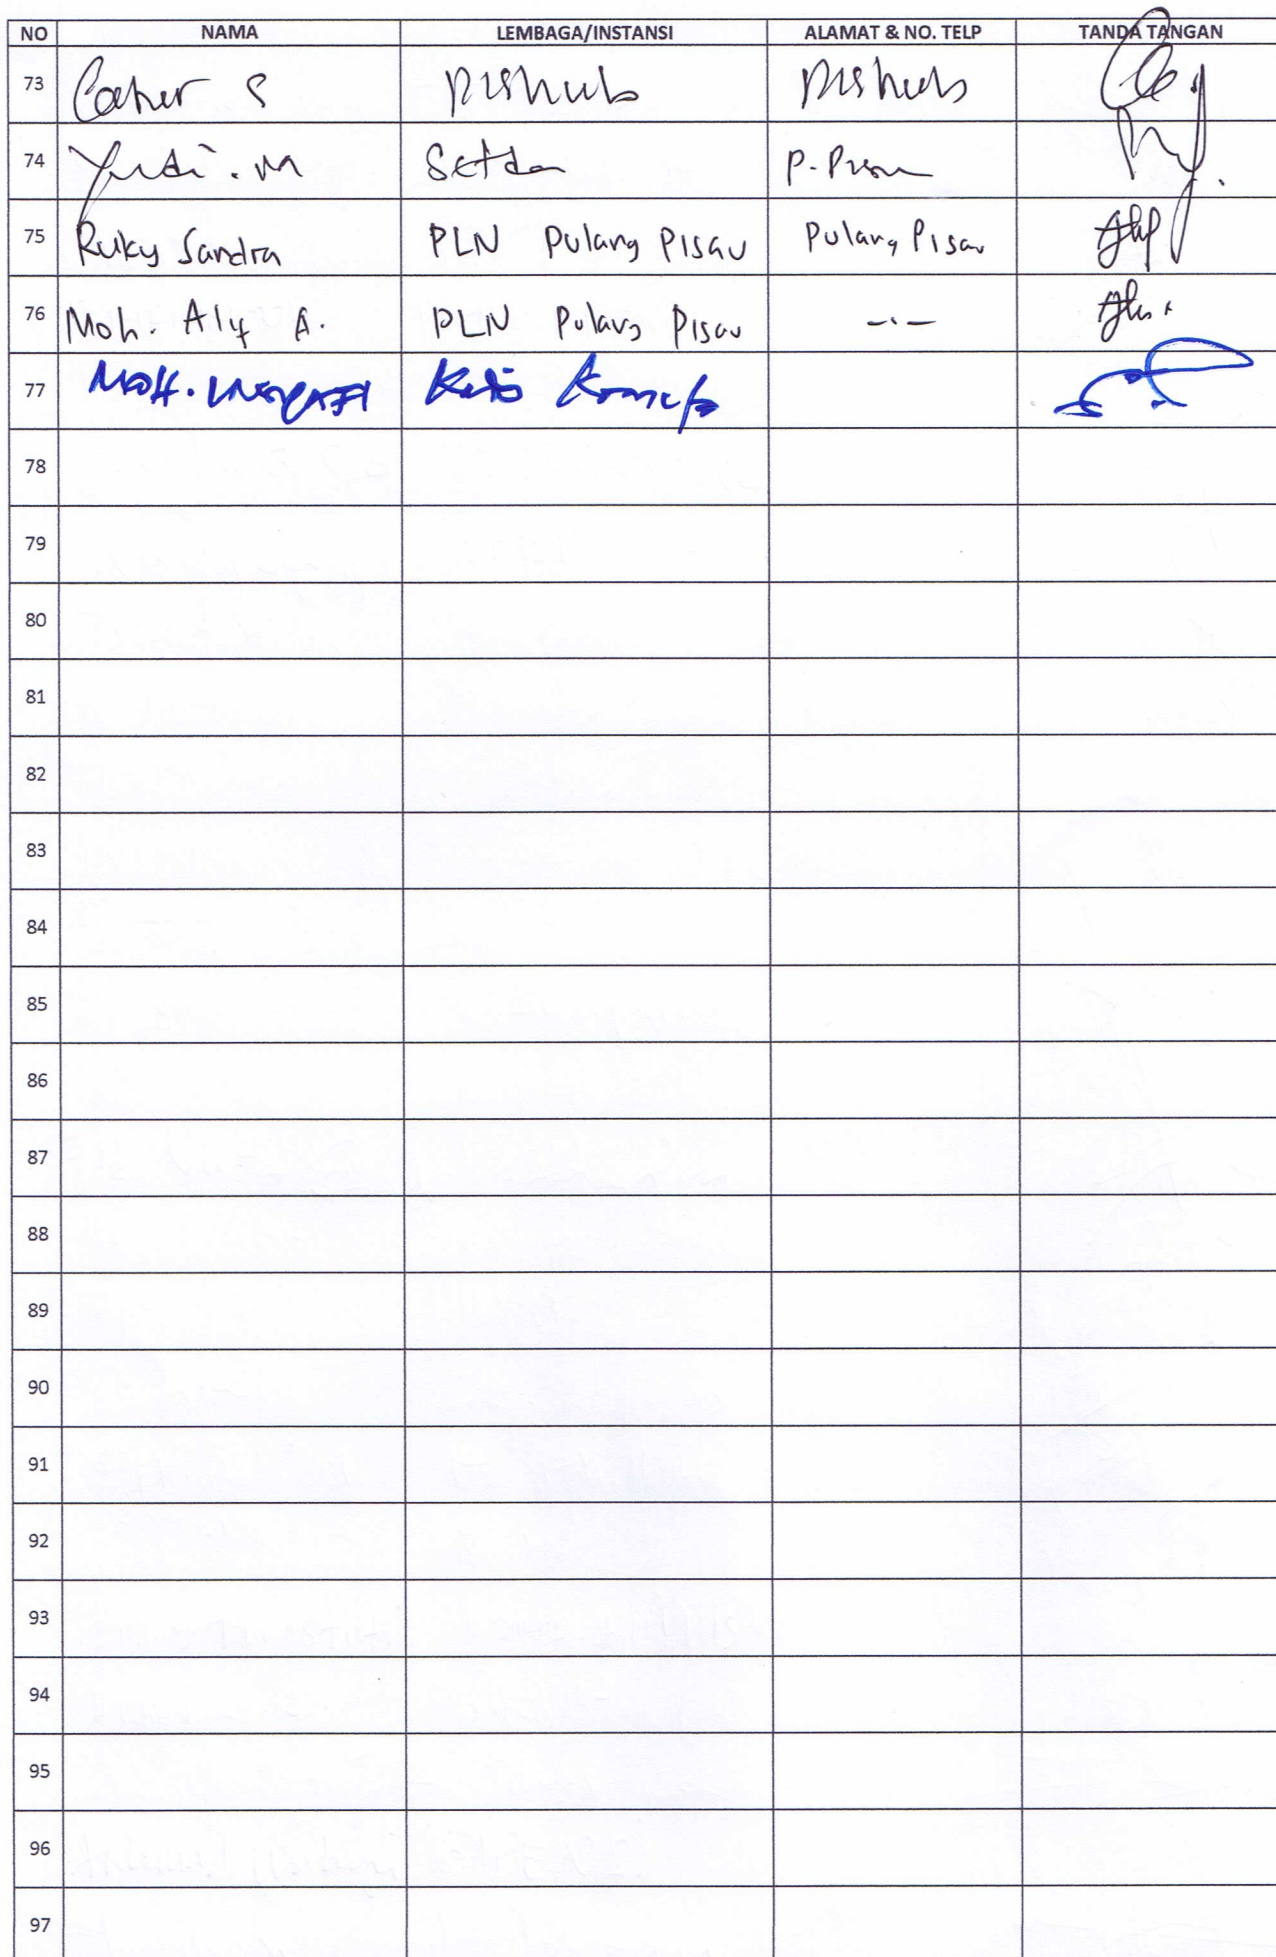 NO NAMA LEMBAGA/INSTANSI ALAMAT & NO. TELP TANDA TANGAN
73 S Dishub Dishub
74 Yudi . M Setda P.
75 Ruky Sandra PLN Pulang Pisau Pulang Pisau
76 Moh. Aly A. PLN Pulang Pisau -.-
77 MOH.
78
79
80
81
82
83
84
85
86
87
88
89
90
91
92
93
94
95
96
97